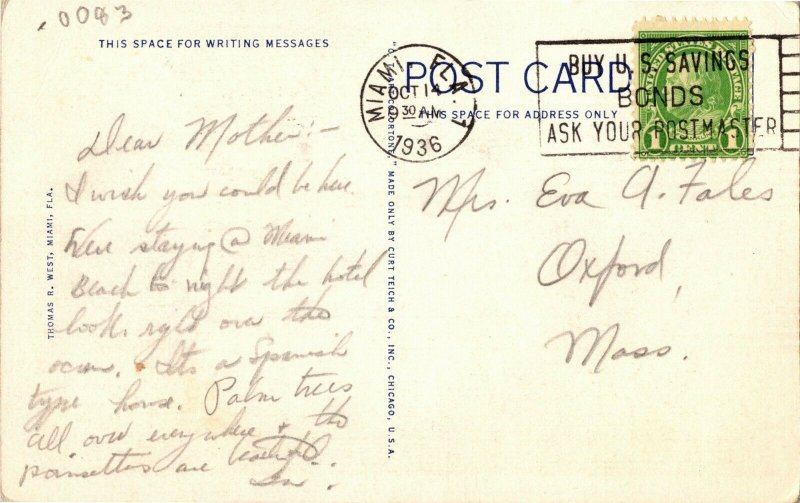 .0083
THIS SPACE FOR WRITING MESSAGES
Dear Mother:-
I wish you could be here.
We're staying @ Miami
Beach to night the hotel
looks right over the
ocean. Its a Spanish
type house. Palm trees
all over everywhere & the
poinsettas are beautiful.
THOMAS R. WEST, MIAMI, FLA.
"C.T. ART-COLORTONE" MADE ONLY BY CURT TEICH & CO., INC., CHICAGO, U.S.A.
POST CARD
THIS SPACE FOR ADDRESS ONLY
MIAMI, FLA.
OCT 14
9 30 AM
1936
BUY U.S. SAVINGS
BONDS
ASK YOUR POSTMASTER
UNITED STATES POSTAGE
1 CENT 1
Mrs. Eva A. Fales
Oxford,
Mass.